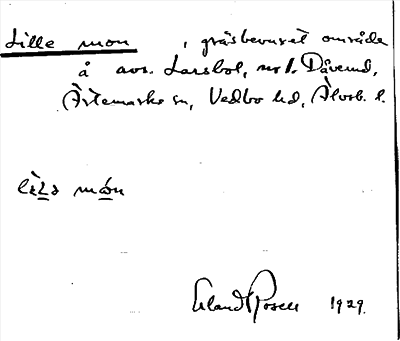 Lille mon, gräsbevuxet område
å avs. Larsbol,
Ärtemarks sn, Vedbo hd, Älvsb. l.
lìla món
Erland Rosell 1929.